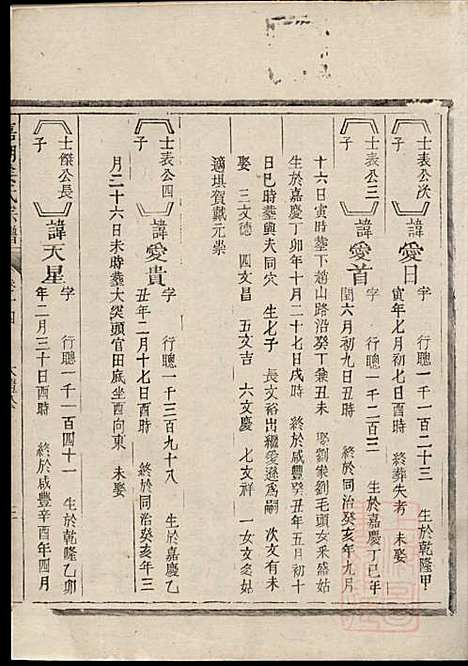 士表公次子
諱愛日 字 行聰一千一百二十三 生於乾隆甲
寅年七月初七日酉時 終葬失考 未娶
士表公三子
諱愛首 字 行聰一千一百二十三 生於嘉慶丁巳年
閏六月初九日丑時 終於同治癸亥年九月
十六日寅時葬下趙山路沿癸丁兼丑未 娶劉家劉毛頭女釆盛姑
生於嘉慶丁卯年十月二十七日戌時 終於咸豐癸丑年五月初十
日巳時葬與夫同穴 生七子 長文裕出繼愛遜為嗣 次文未
三文德 四文昌 五文吉 六文慶 七文祥 一女文多姑
適琪賀戴元崇
士表公四子
諱愛貴 字 行聰一千三百九十八 生於嘉慶乙
丑年二月十七日酉時 終於同治癸亥年三
月二十六日未時葬大突頭官田底坐酉向東 未娶
士傑公長子
諱天星 字 行聰一千一百四十一 生於乾隆乙卯
年二月三十日酉時 終於咸豐辛酉年四月